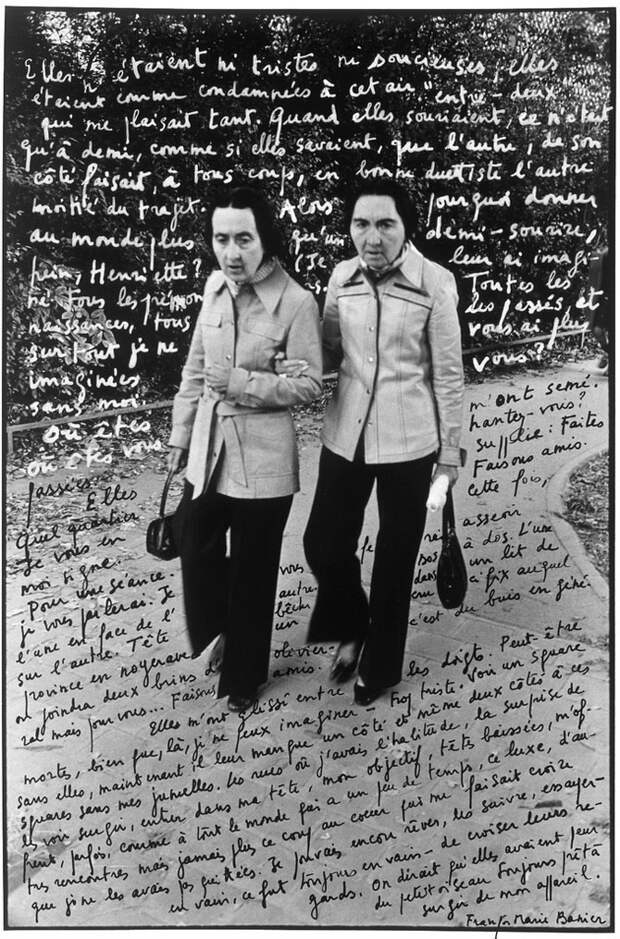 Elles n'étaient ni tristes ni soucieuses ; elles
étaient comme condamnées à cet air "entre-deux"
qui me plaisait tant. Quand elles souriaient, ce n'était
qu'à demi, comme si elles savaient, que l'autre, de son
côté faisait, à tous coups, en bonne duettiste l'autre
moitié du trajet. Alors pourquoi donner
au monde plus qu'un demi-sourire,
hein, Henriette ? (Je leur ai imagi-
né tous les prénoms. Toutes les
naissances, tous les passés, et
surtout je ne vous ai plus
imaginées vous ?
sans moi. m'ont semé.
Où êtes hantez-vous ?
Où êtes vous supplie : Faites
passées ? Faisons amis.
Elles cette fois,
Quel quartier asseoir
Je vous en dos à dos. L'une
moi signe. dans un lit de
Pour une séance. vous crucifix auquel
je vous parlerai. Je autre c'est du buis en géné-
l'une en face de l' bêche
sur l'autre. Tête un
province en noyer avec olivier-
on joindra deux brins d' amis.
ral mais pour vous... Faisons
Elles m'ont glissé entre les doigts. Peut-être
mortes, bien que, là, je ne peux imaginer - trop triste. Voir un square
sans elles, maintenant il leur manque un côté et même deux côtés à ces
squares sans mes jumelles. Les rues où j'avais l'habitude, la surprise de
les voir surgir, entrer dans ma tête, mon objectif, têtes baissées, m'of-
frent, parfois, comme à tout le monde qui a un peu de temps, ce luxe, d'au-
tres rencontres mais jamais plus ce coup au coeur qui me faisait croire
que je ne les avais pas quittées. Je pouvais encore rêver, les suivre, essayer-
en vain, ce fut toujours en vain - de croiser leurs re-
gards. On dirait qu'elles avaient peur
du petit oiseau toujours prêt à
surgir de mon appareil.
François-Marie Banier